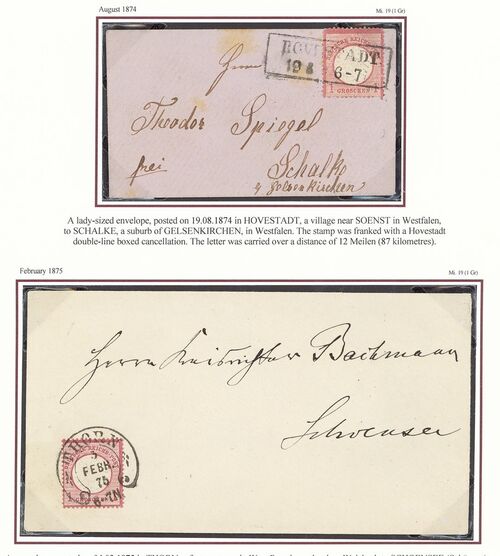 August 1874
Mi. 19 (1 Gr)
HOVESTADT.
19 8
6-7
DEUTSCHE REICHS-POST
1 GROSCHEN 1
Herrn
Theodor Spiegel
frei
Schalke
b/ Gelsenkirchen
A lady-sized envelope, posted on 19.08.1874 in HOVESTADT, a village near SOENST in Westfalen,
to SCHALKE, a suburb of GELSENKIRCHEN, in Westfalen. The stamp was franked with a Hovestadt
double-line boxed cancellation. The letter was carried over a distance of 12 Meilen (87 kilometres).
February 1875
Mi. 19 (1 Gr)
Herrn Kreisrichter Bachmann
Schoensee
THORN
3
FEBR
75